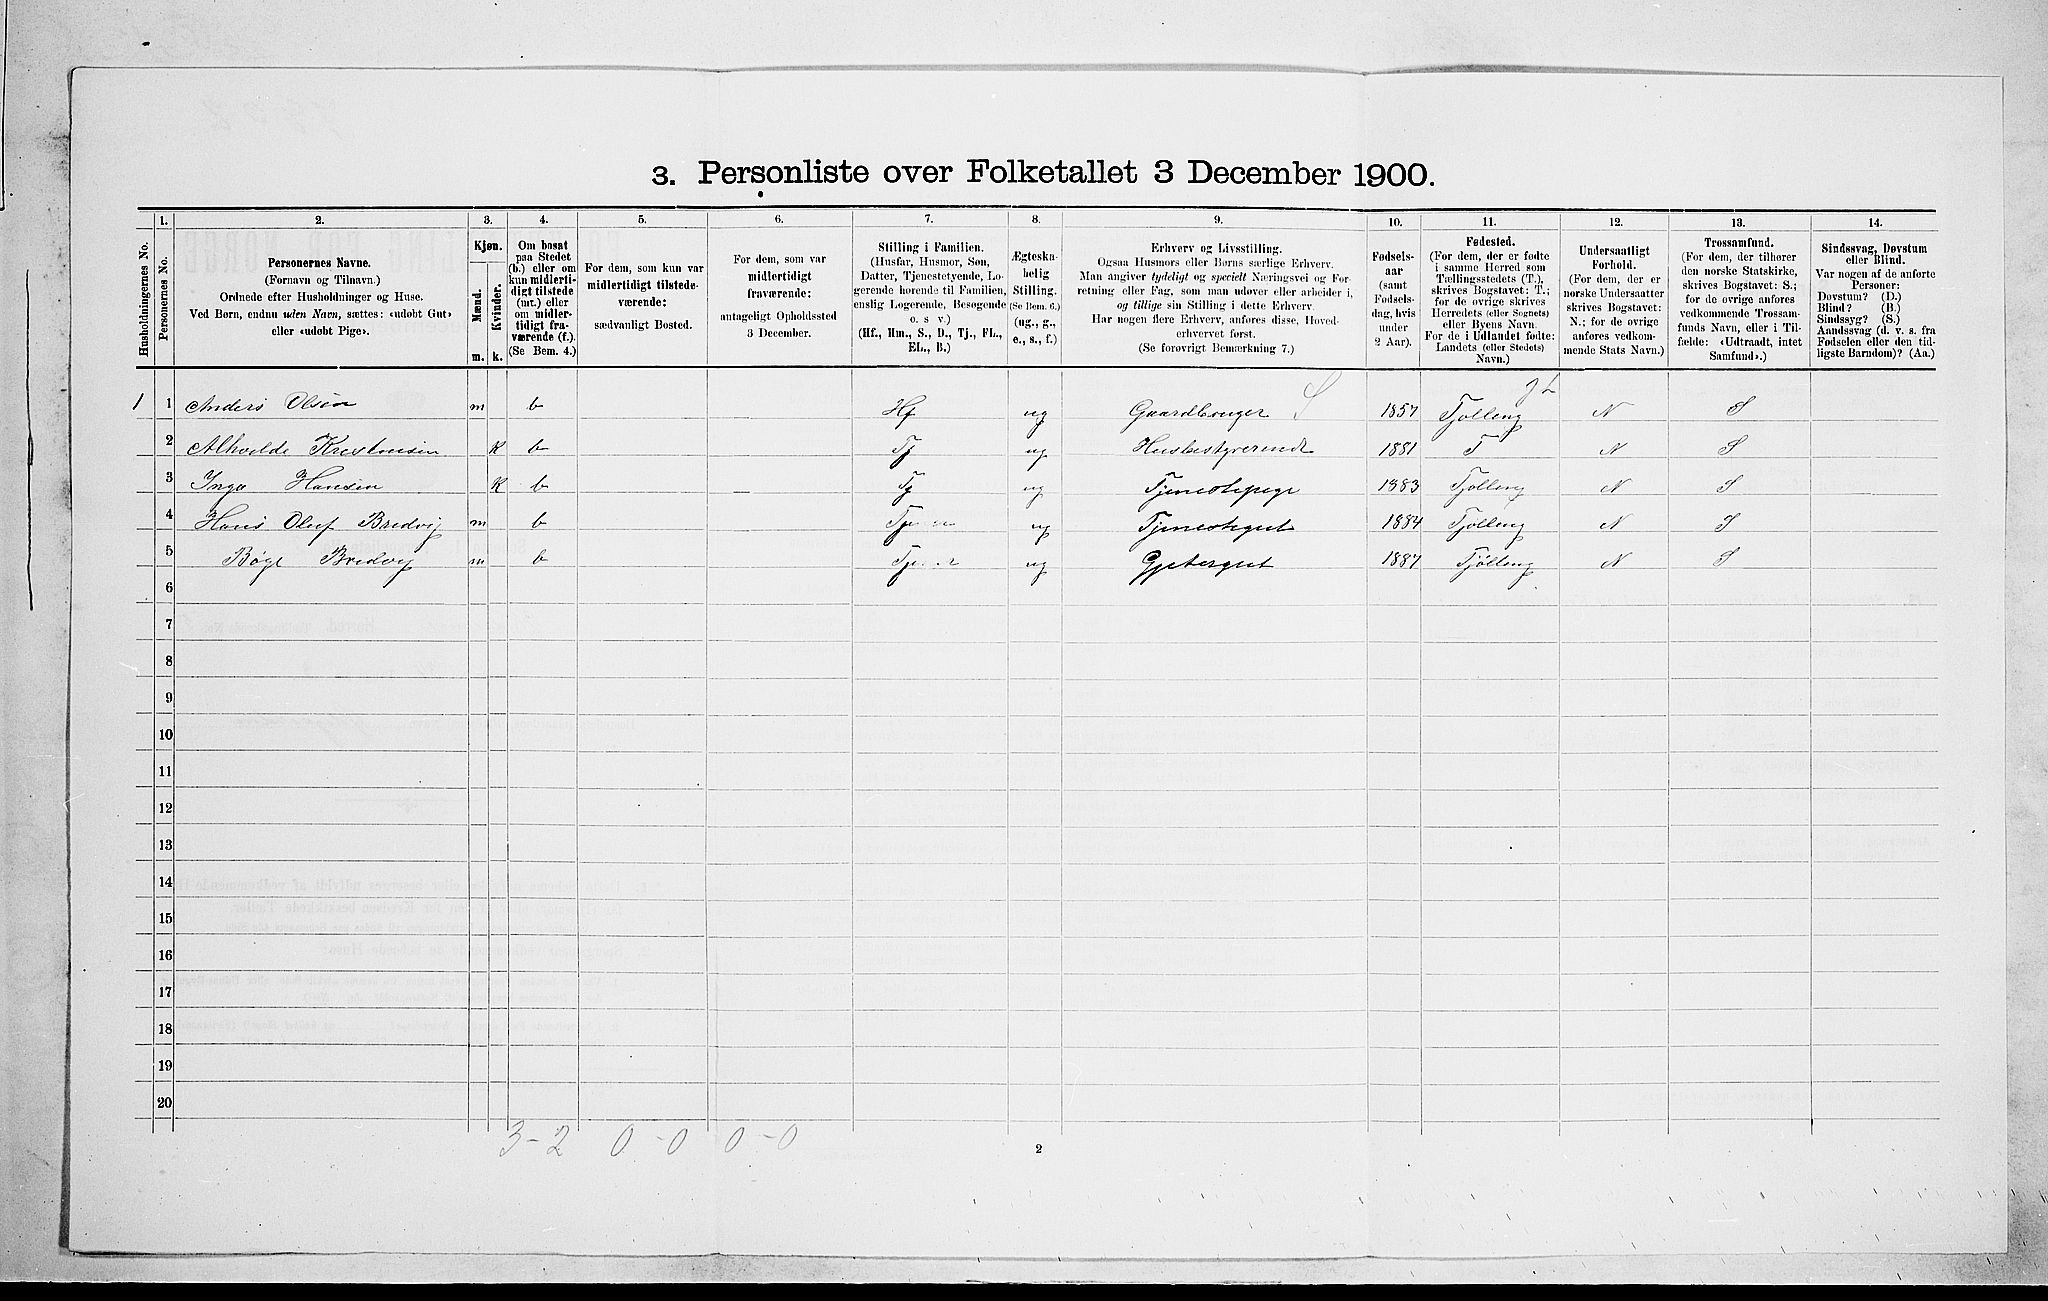 3. Personliste over Folketallet 3 December 1900.
Husholdningernes No.
1.
Personernes No.
2.
Personernes Navne.
(Fornavn og Tilnavn.)
Ordnede efter Husholdninger og Huse.
Ved Børn, endnu uden Navn, sættes: «udobt Gut»
eller «udobt Pige».
3.
Kjøn.
Mænd.
Kvinder.
m. k.
4.
Om bosat
paa Stedet
(b.) eller om
kun midlerti-
digt tilstede
(mt.) eller
om midler-
tidigt fra-
værende (f.).
(Se Bem. 4.)
5.
For dem, som kun var
midlertidigt tilstede-
værende:
sædvanligt Bosted.
6.
For dem, som var
midlertidigt
fraværende:
antageligt Opholdssted
3 December.
7.
Stilling i Familien.
(Husfar, Husmor, Søn,
Datter, Tjenestetyende, Lo-
gerende hørende til Familien,
enslig Logerende, Besøgende
o. s v.)
(Hf., Hm., S., D., Tj., FL.,
EL., B.)
8.
Ægteska-
belig
Stilling.
(Se Bem. 6.)
(ug., g.,
e., s., f.)
9.
Erhverv og Livsstilling.
Ogsaa Husmors eller Børns særlige Erhverv.
Man angiver tydeligt og specielt Næringsvei og For-
retning eller Fag, som man udøver eller arbeider i,
og tillige sin Stilling i dette Erhverv.
Har nogen flere Erhverv, anføres disse, Hoved-
erhvervet først.
(Se forøvrigt Bemærkning 7.)
10.
Fødsels-
aar
(samt
Fødsels-
dag, hvis
under
2 Aar).
11.
Fødested.
(For dem, der er fødte
i samme Herred som
Tællingsstedets (T.),
skrives Bogstavet: T.;
for de øvrige skrives
Herredets (eller Sognets)
eller Byens Navn.
For de i Udlandet fødte:
Landets (eller Stedets)
Navn.)
12.
Undersaatligt
Forhold.
(For dem, der er
norske Undersaatter
skrives Bogstavet:
N.; for de øvrige
anføres vedkom-
mende Stats Navn.)
13.
Trossamfund.
(For dem, der tilhører
den norske Statskirke,
skrives Bogstavet: S.;
for de øvrige anføres
vedkommende Trossam-
funds Navn, eller i Til-
fælde: «Udtraadt, intet
Samfund».)
14.
Sindssvag, Døvstum
eller Blind.
Var nogen af de anførte
Personer:
Døvstum? (D.)
Blind? (B.)
Sindssyg? (S.)
Aandssvag (d. v. s. fra
Fødselen eller den tid-
ligste Barndom)? (Aa.)
1 1 Anders Olsen m b Hf ug Gaardbruger S 1857 Tjølling N S
2 Alhvilde Kristensen k b Tj ug Husbestyrerinde 1881 T N S
3 Inga Hansen k b Tj ug Tjenestepige 1883 Tjølling N S
4 Hans Oluf Bredvig m b ug Tjenestegut 1884 Tjølling N S
5 Bøge Bredvig m b ug Gjetergut 1887 Tjølling N S
6
7
8
9
10
11
12
13
14
15
16
17
18
19
20
3-2 0-0 0-0
2